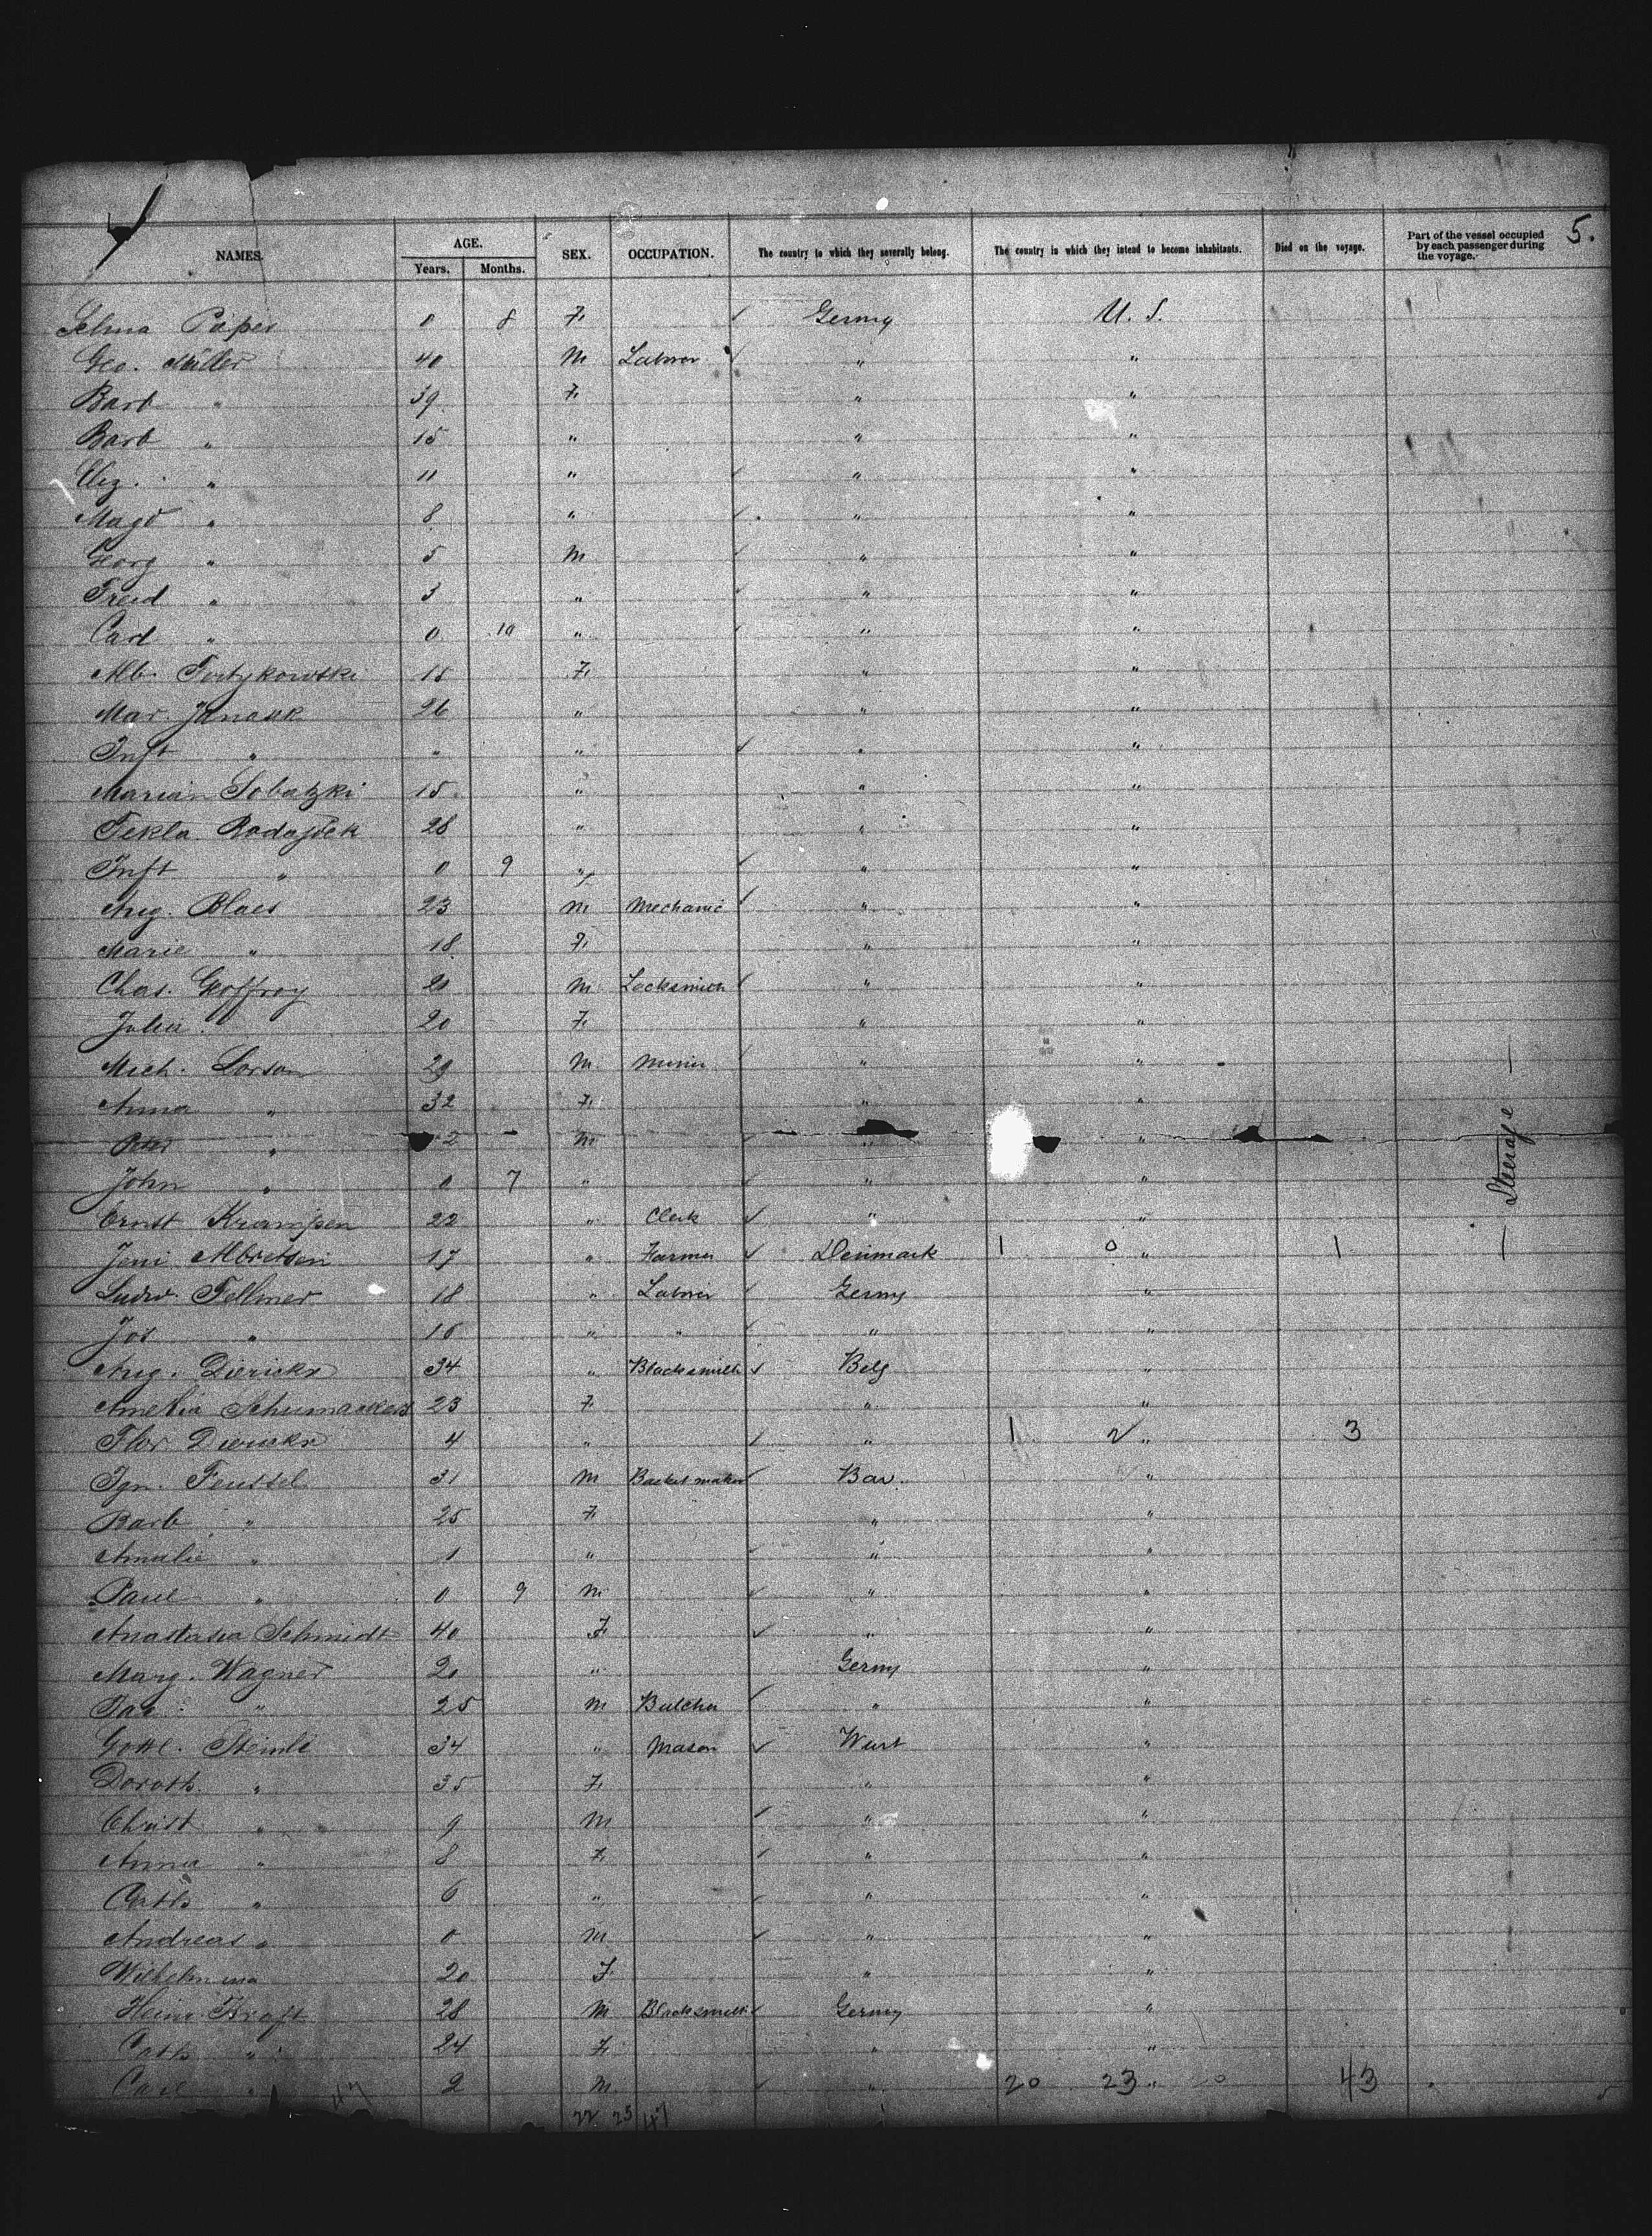 5.
NAMES. AGE. Years. Months. SEX. OCCUPATION. The country to which they severally belong. The country in which they intend to become inhabitants. Died on the voyage. Part of the vessel occupied by each passenger during the voyage.
Selma Pieper 0 8 F. Germy U. S.
Geo. Müller 40 M Laborer " "
Barb " 39 F. " "
Barb " 15 " " "
Eliz. " 11 " " "
Magd " 8 " " "
Georg " 5 M " "
Fried " 3 " " "
Carl " 0 10 " " "
Alb. 15 F. " "
Mar. Janosek 26 " " "
Inft " " " " "
Marian Sobatzki 15 " " "
Tekla 28 " " "
Inft " 0 9 " " "
Aug. Blaes 23 M Mechanic " "
Marie " 18 F. " "
Chas. Goffroy 20 M Locksmith " "
Julia 20 F. " "
Mich. Lorson 29 M Miner " "
Anna " 32 F. " "
Peter " 2 - M " "
John " 0 7 " " "
Ernst Krampen 22 " Clerk " "
17 " Farmer Denmark 1 0 " 1
Ludw. Fellmer 18 " Laborer Germy "
Jos " 16 " " " "
Aug. Dierickx 34 " Blacksmith Belg "
Amelia 23 F. " "
Flor. Dierickx 4 " " 1 2 " 3
Ign. Feussel 31 M Basket maker Bav. "
Barb " 25 F. " "
Amalie " 1 " " "
Paul " 0 9 M " "
Anastasia Schmidt 40 F. " "
Marg. Wagner 20 " Germy "
" 25 M Butcher " "
Gottl. Steinle 34 " Mason Wurt "
Doroth. " 35 F. " "
Christ " 9 M " "
Anna " 8 F. " "
Cath " 6 " " "
Andreas " 0 M " "
Wilhelmina 20 F. " "
Heinr Kraft 28 M Blacksmith Germy "
Cath " 24 F. " "
Carl " 2 M " 20 23 " 43
47 22 25 47
— Steerage —